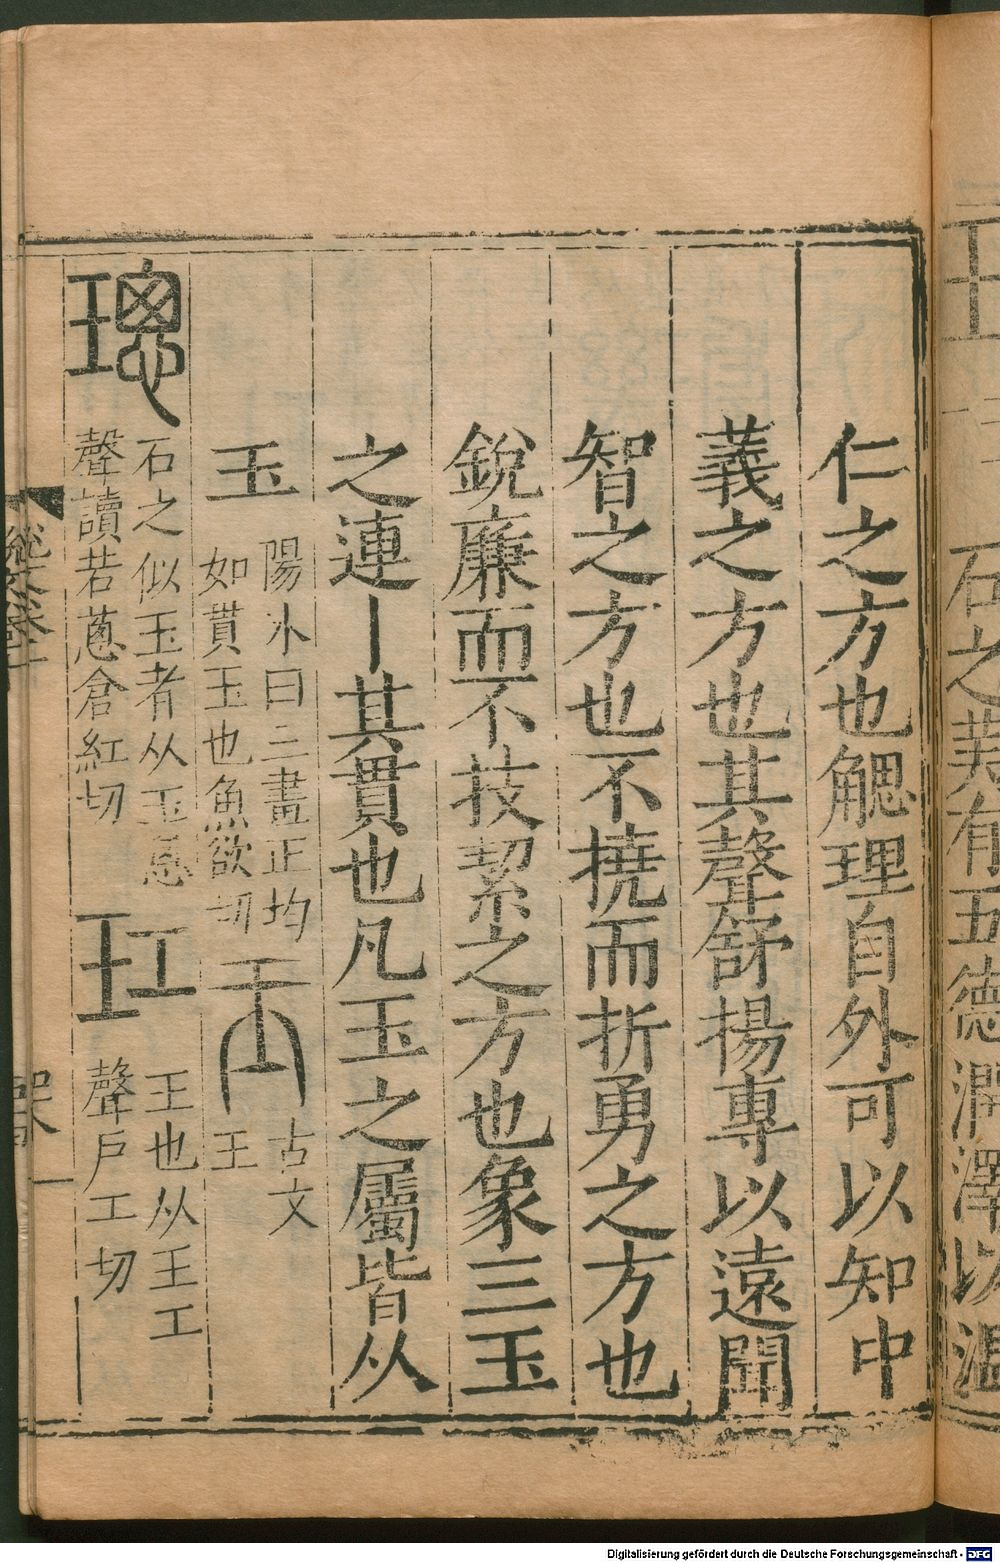 玉 石之美有五德潤澤以温
仁之方也䚡理自外可以知中
義之方也其聲舒揚專以遠聞
智之方也不撓而折勇之方也
銳廉而不技絜之方也象三玉
之連丨其貫也凡玉之屬皆从
玉 陽冰曰三畫正均
如貫玉也魚欲切
古文
玉
璁 石之似玉者从玉悤
聲讀若蔥倉紅切
玒 玉也从王工
聲戶工切
Digitalisierung gefördert durch die Deutsche Forschungsgemeinschaft - DFG